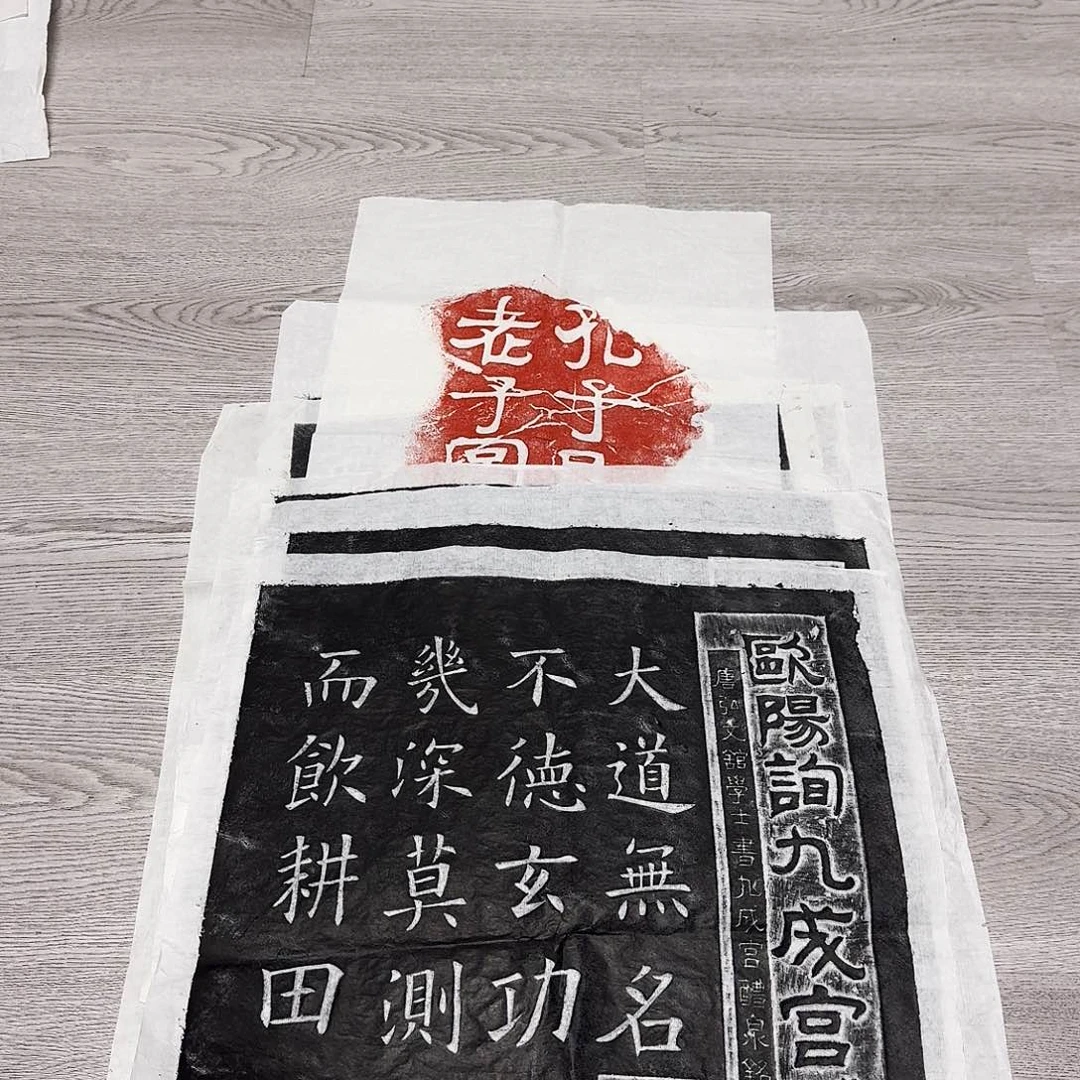 孔子
老子
歐陽詢九成宮
唐弘文館學士書九成宮醴泉銘
大道無名
不德玄功
幾深莫測
而飲耕田